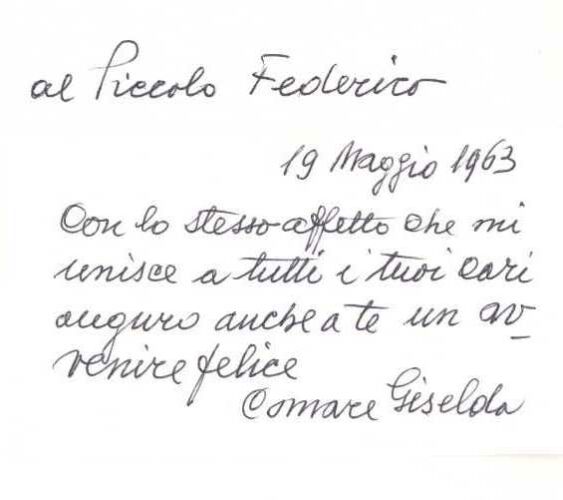 al Piccolo Federico
19 Maggio 1963
Con lo stesso affetto che mi
unisce a tutti i tuoi cari
auguro anche a te un av-
venire felice
Comare Giselda